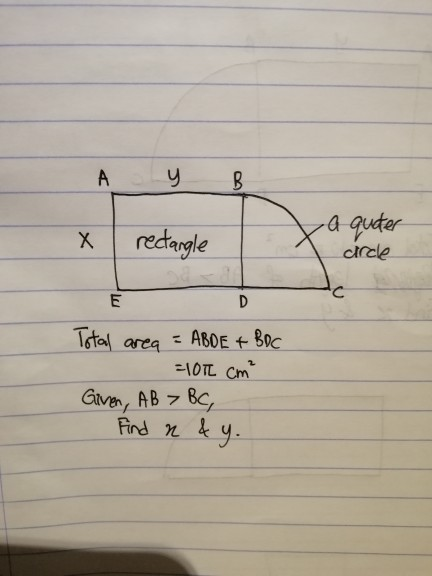 A y B
X rectangle a quter
circle
E D C
Total area = ABDE + BDC
=10π cm²
Given, AB > BC,
Find x & y.